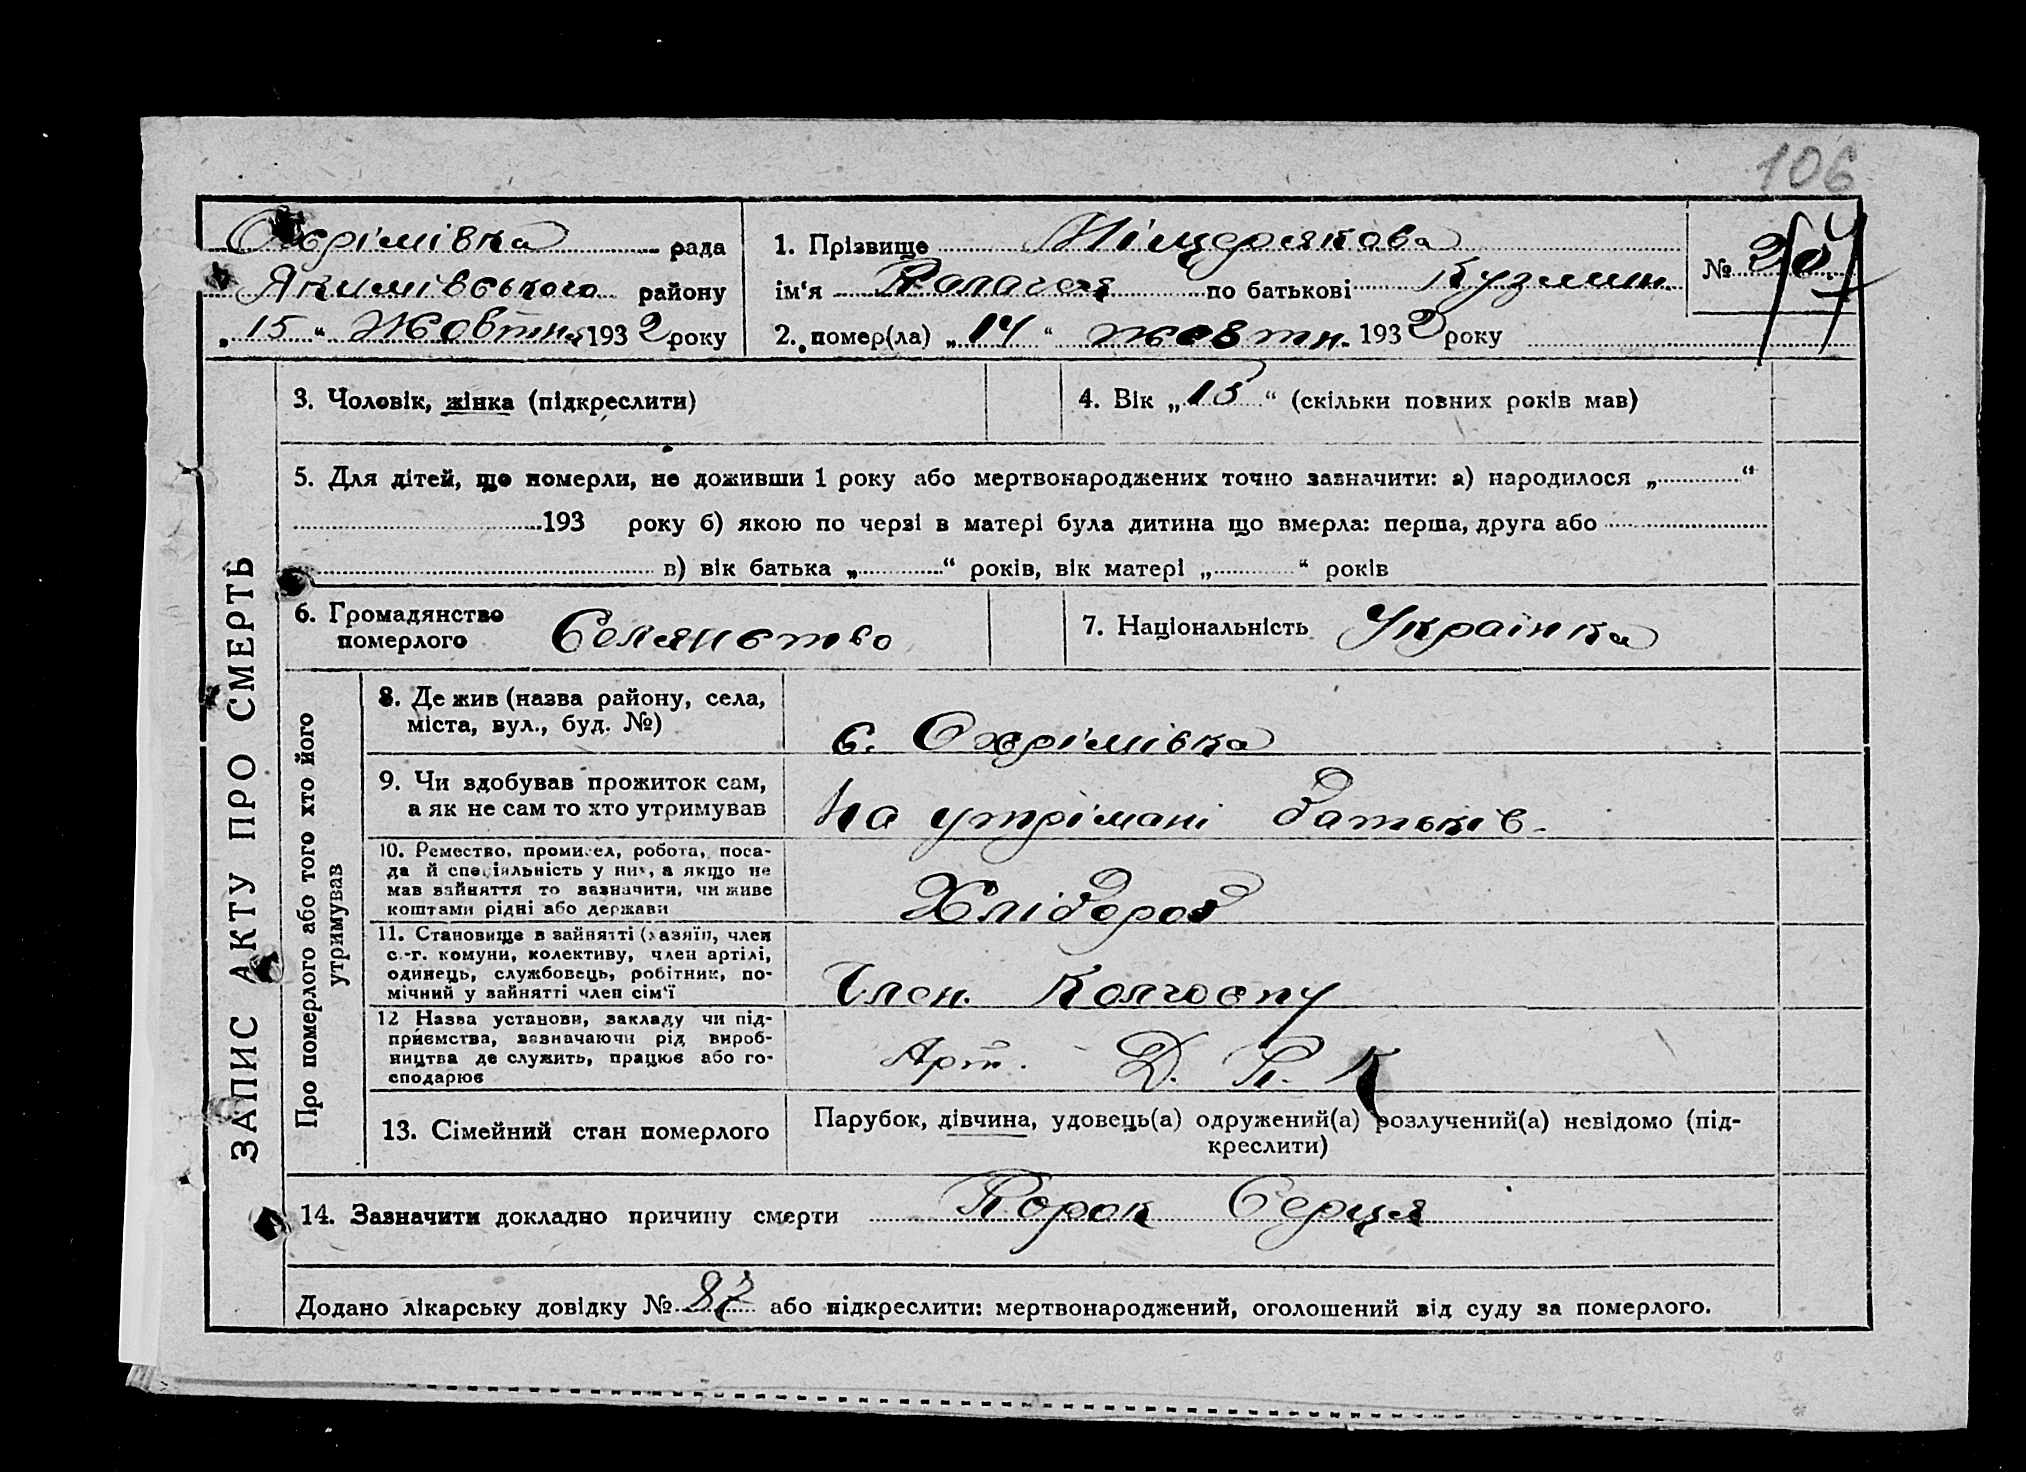 106
Охрімівка рада
Якимівського району
„15“ Жовтня 1932 року
1. Прізвище Міщерякова
ім‘я Палагея по батькові Кузмин.
2. помер(ла) „14“ жовтн. 1932 року
№
3. Чоловік, жінка (підкреслити)
4. Вік „13“ (скільки повних років мав)
5. Для дітей, що померли, не доживши 1 року або мертвонароджених точно зазначити: а) народилося „ “
193 року б) якою по черзі в матері була дитина що вмерла: перша, друга або
в) вік батька „ “ років, вік матері „ “ років
6. Громадянство
померлого Селянство
7. Національність Українка
ЗАПИС АКТУ ПРО СМЕРТЬ
Про померлого або того хто його
утримував
8. Де жив (назва району, села,
міста, вул., буд. №)
с. Охрімівка
9. Чи здобував прожиток сам,
а як не сам то хто утримував
На утрімані батьків.
10. Ремество, промисел, робота, поса-
да й спеціяльність у них, а якщо не
мав зайняття то зазначити, чи живе
коштами рідні або держави
Хлібороб
11. Становище в зайнятті (хазяїн, член
с.-г. комуни, колективу, член артілі,
одинець, службовець, робітник, по-
мічний у зайнятті член сім‘ї
Член. Колгоспу
12 Назва установи, закладу чи під-
приємства, зазначаючи рід вироб-
ництва де служить, працює або го-
сподарює
Арт. Д. П. К
13. Сімейний стан померлого
Парубок, дівчина, удовець(а) одружений(а) розлучений(а) невідомо (під-
креслити)
14. Зазначити докладно причину смерти Порок Серця
Додано лікарську довідку № 87 або підкреслити: мертвонароджений, оголошений від суду за померлого.